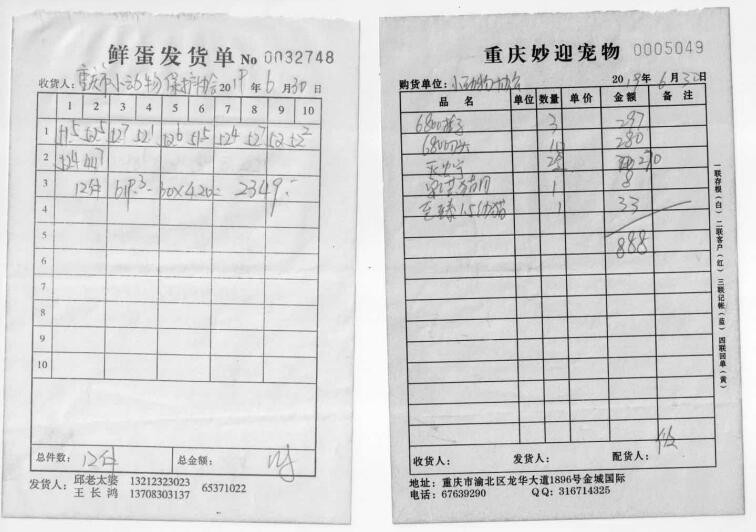 鲜蛋发货单 No 0032748
收货人: 重庆市小动物保护协会 2019年6月30日
1 2 3 4 5 6 7 8 9 10
1 51.5 52.5 52.7 52.1 52.6 51.5 52.4 52.7 52 52.2
2 52.4 44.7
3 12件 619.3-30×4.20= 2349.-
4
5
6
7
8
9
10
总件数: 12件 总金额:
发货人: 邱老太婆 13212323023 65371022
王长鸿 13708303137
重庆妙迎宠物 0005049
购货单位: 小动物协会 2019年6月30日
品名 单位 数量 单价 金额 备注
3 297
280
270
1 8
1 33
888
一联存根(白) 二联客户(红) 三联记帐(蓝) 四联回单(黄)
收货人: 发货人: 配货人:
地址: 重庆市渝北区龙华大道1896号金城国际
电话: 67639290 QQ: 316714325